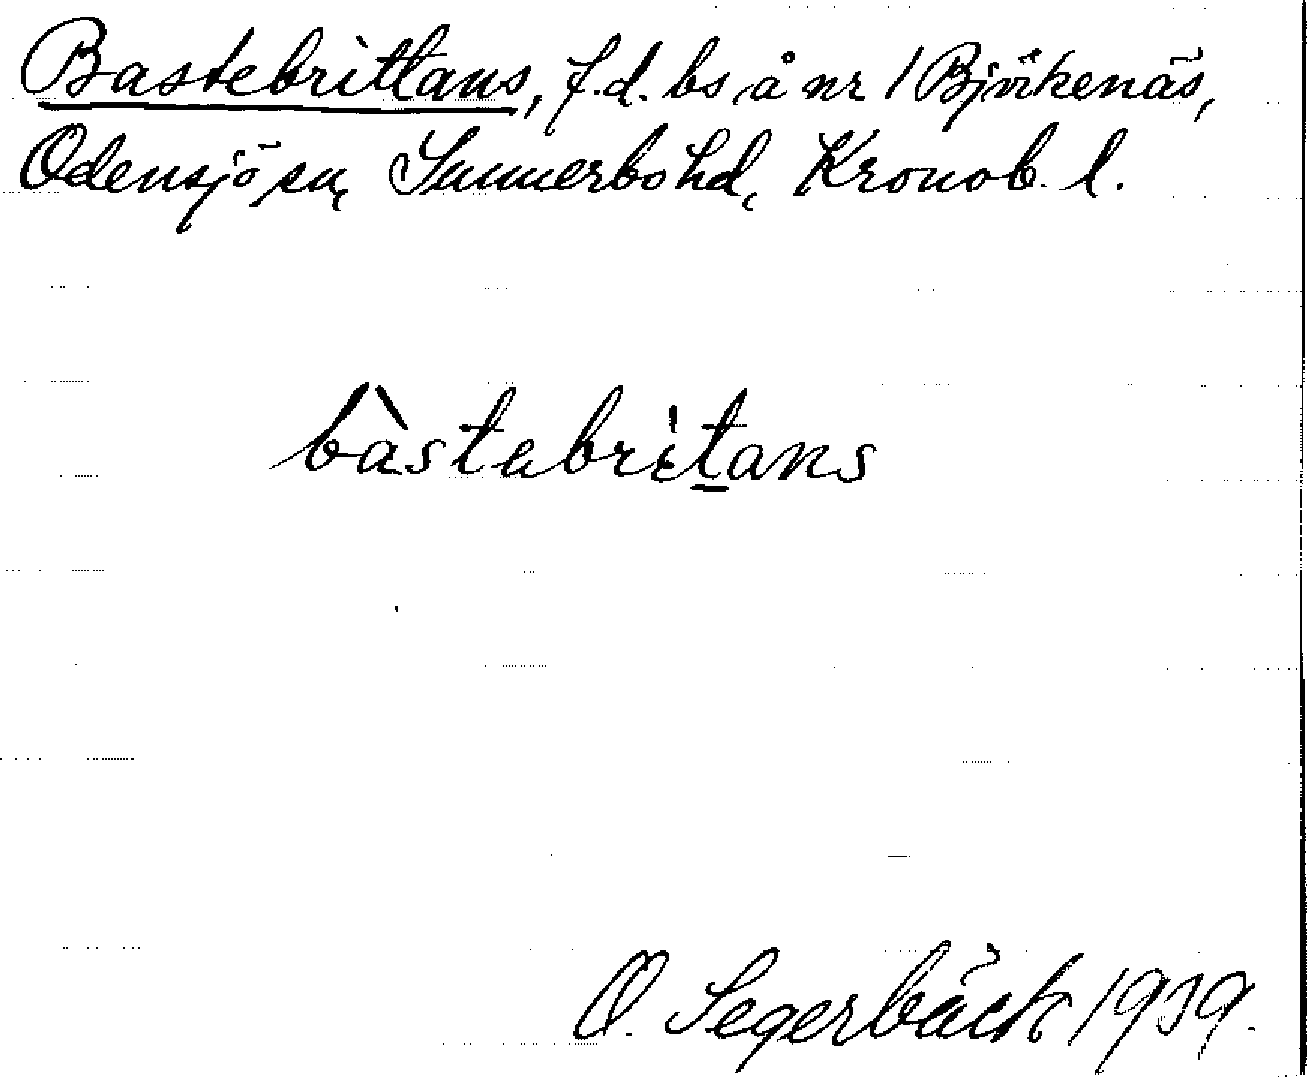 Bastebrittans, f.d. bs å nr 1 Björkenäs,
Odensjö sn, Sunnerbo hd, Kronob. l.
bàstabrìtans
O. Segerbäck 1939.